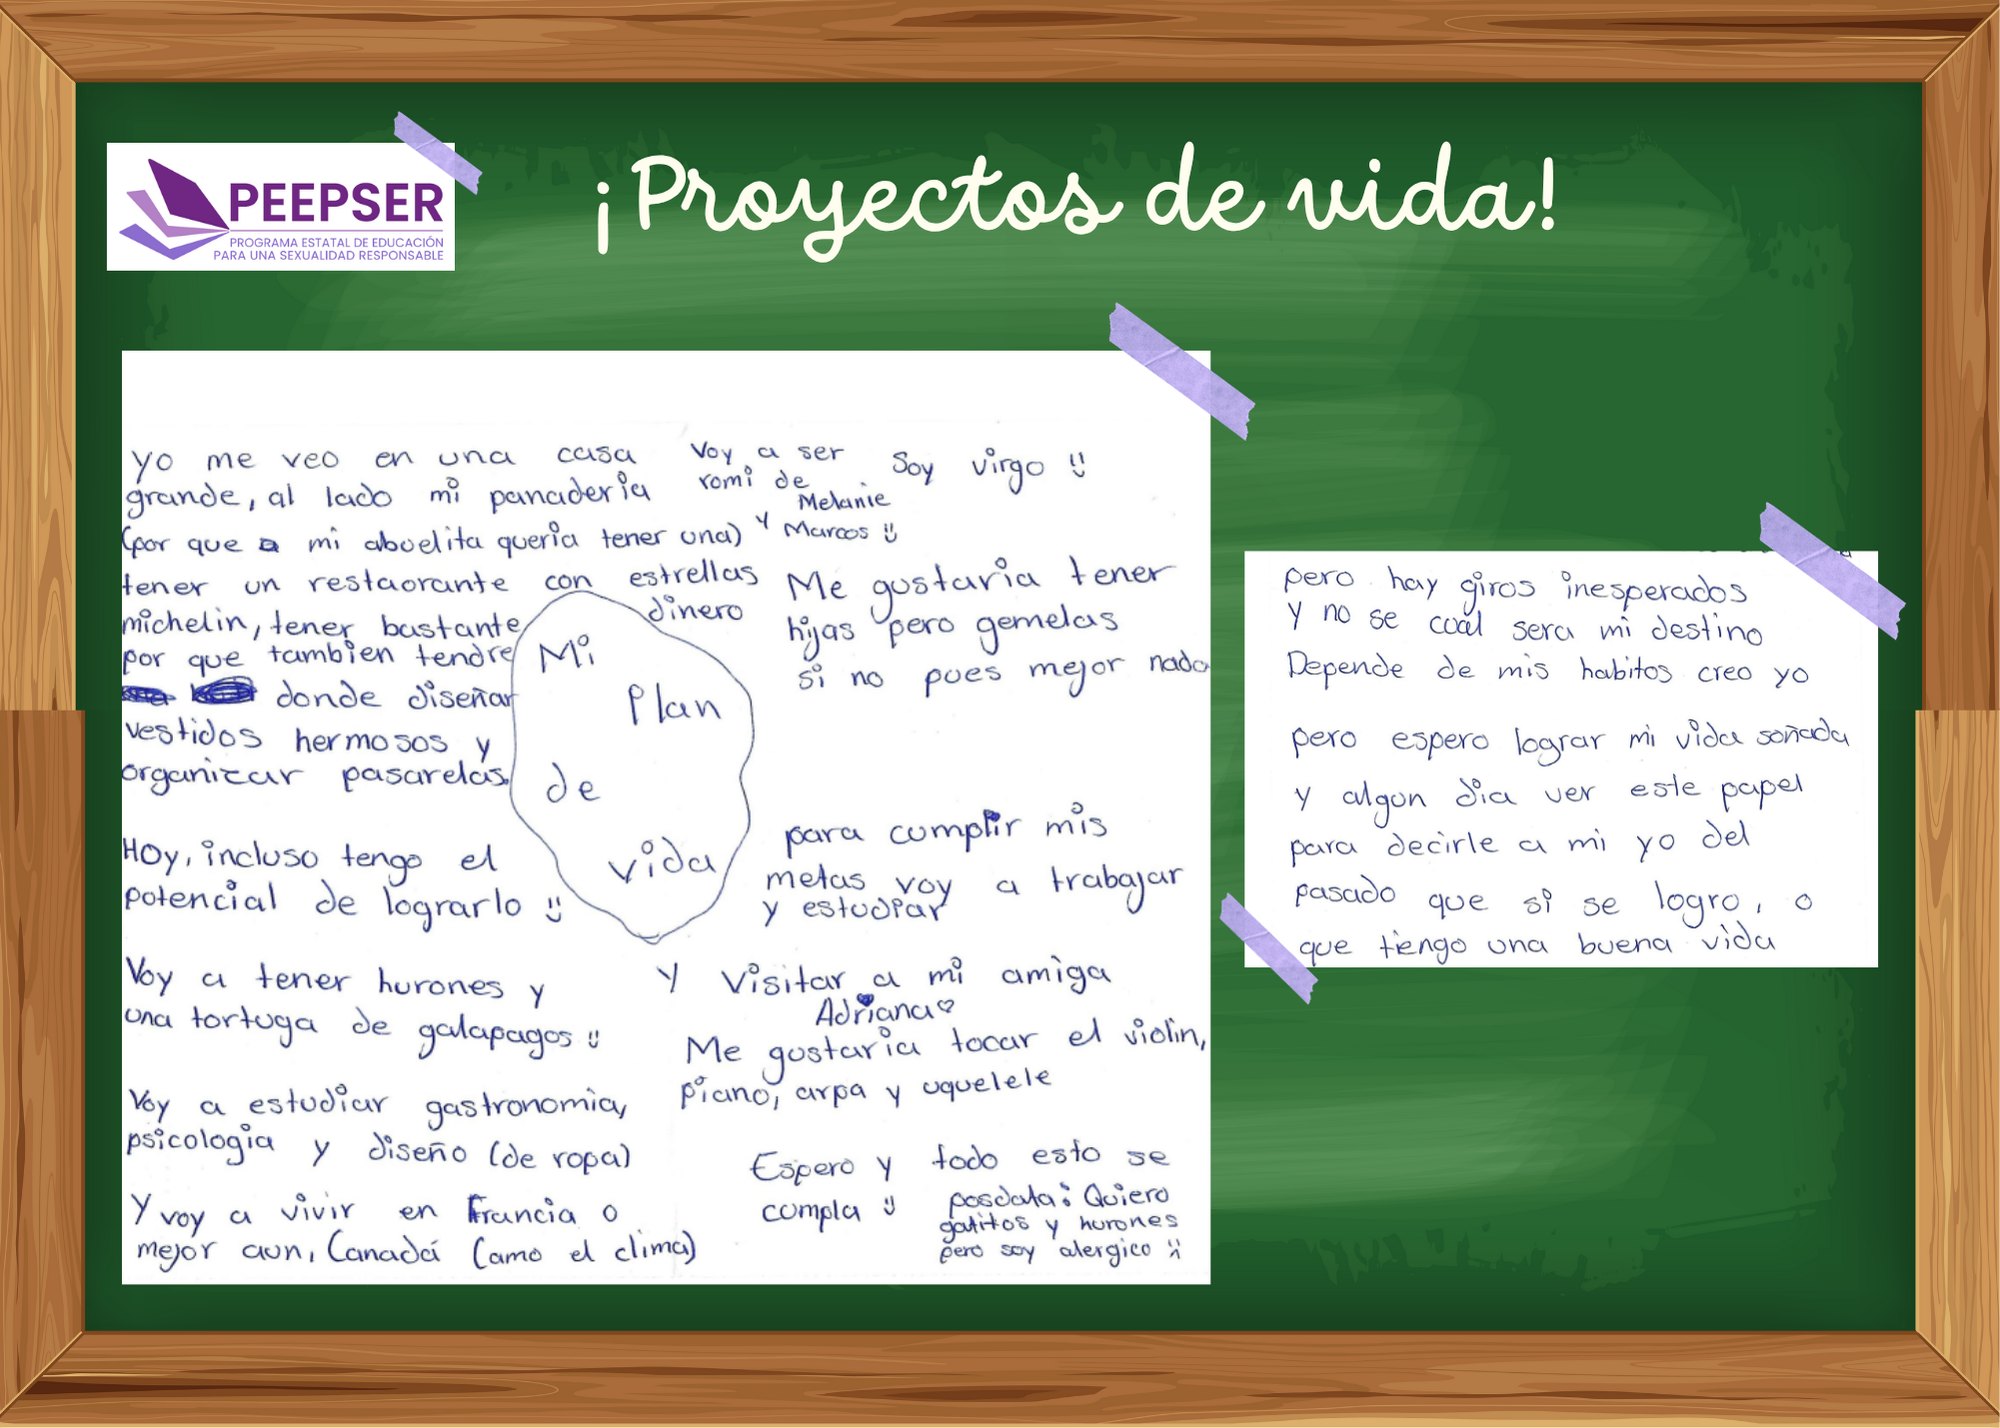 PEEPSER
PROGRAMA ESTATAL DE EDUCACIÓN
PARA UNA SEXUALIDAD RESPONSABLE
¡Proyectos de vida!
yo me veo en una casa
grande, al lado mi panaderia
(por que a mi abuelita queria tener una)
tener un restaorante con estrellas
michelin, tener bastante dinero
por que tambien tendre
donde diseñar
vestidos hermosos y
organizar pasarelas.
Hoy, incluso tengo el
potencial de lograrlo
Voy a tener hurones y
una tortuga de galapagos
Voy a estudiar gastronomia,
psicologia y diseño (de ropa)
Y voy a vivir en Francia o
mejor aun, Canadá (amo el clima)
Mi
Plan
de
vida
Voy a ser
romi de
Melanie
y Marcos
Soy virgo
Me gustaria tener
hijas pero gemelas
si no pues mejor nada
para cumplir mis
metas voy a trabajar
y estudiar
y visitar a mi amiga
Adriana
Me gustaria tocar el violin,
piano, arpa y uquelele
Espero y todo esto se
cumpla
posdata: Quiero
gatitos y hurones
pero soy alergico
pero hay giros inesperados
y no se cual sera mi destino
Depende de mis habitos creo yo
pero espero lograr mi vida soñada
y algun dia ver este papel
para decirle a mi yo del
pasado que si se logro, o
que tiengo una buena vida